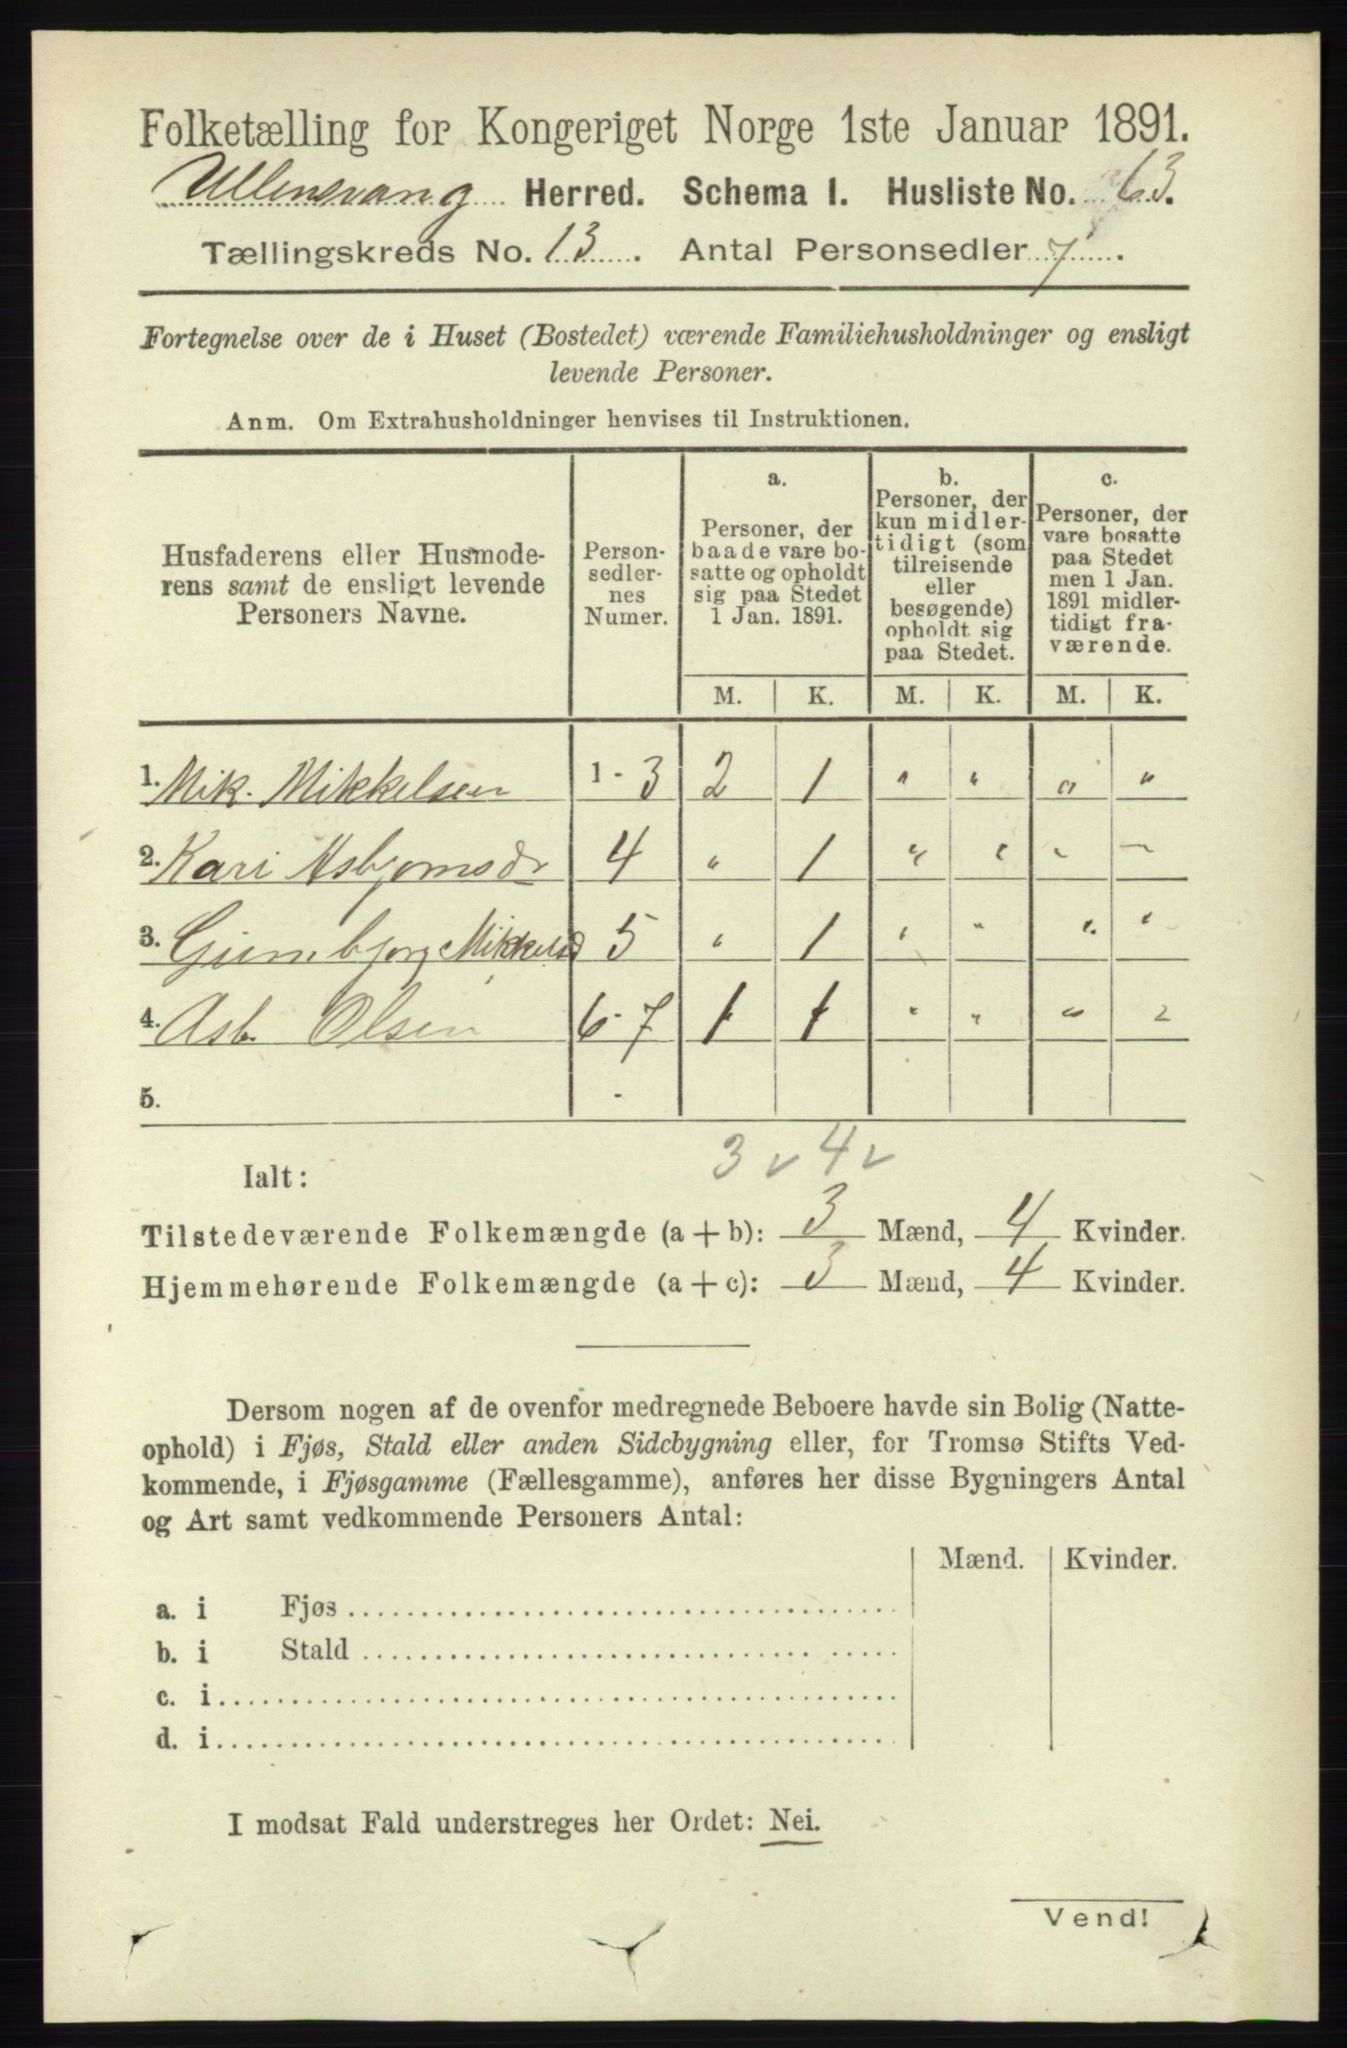 Folketælling for Kongeriget Norge 1ste Januar 1891.
Ullensvang Herred. Schema 1. Husliste No. 63.
Tællingskreds No. 13. Antal Personsedler 7.
Fortegnelse over de i Huset (Bostedet) værende Familiehusholdninger og ensligt
levende Personer.
Anm. Om Extrahusholdninger henvises til Instruktionen.
Husfaderens eller Husmode-
rens samt de ensligt levende
Personers Navne.
Person-
sedler-
nes
Numer.
a.
Personer, der
baade vare bo-
satte og opholdt
sig paa Stedet
1 Jan. 1891.
b.
Personer, der
kun midler-
tidigt (som
tilreisende
eller
besøgende)
opholdt sig
paa Stedet.
c.
Personer, der
vare bosatte
paa Stedet
men 1 Jan.
1891 midler-
tidigt fra-
værende.
M. K. M. K. M. K.
1. Mik. Mikkelsen 1 - 3 2 1 " " " "
2. Kari Asbjørnsdr 4 " 1 " " " "
3. Gunnbjørg Mikkelsd 5 " 1 " " " "
4. Asb. Olsen 6 - 7 1 1 " " " "
5. -
3 v 4 v
Ialt:
Tilstedeværende Folkemængde (a + b): 3 Mænd, 4 Kvinder.
Hjemmehørende Folkemængde (a + c): 3 Mænd, 4 Kvinder.
Dersom nogen af de ovenfor medregnede Beboere havde sin Bolig (Natte-
ophold) i Fjøs, Stald eller anden Sidebygning eller, for Tromsø Stifts Ved-
kommende, i Fjøsgamme (Fællesgamme), anføres her disse Bygningers Antal
og Art samt vedkommende Personers Antal:
Mænd. Kvinder.
a. i Fjøs
b. i Stald
c. i
d. i
I modsat Fald understreges her Ordet: Nei.
Vend!